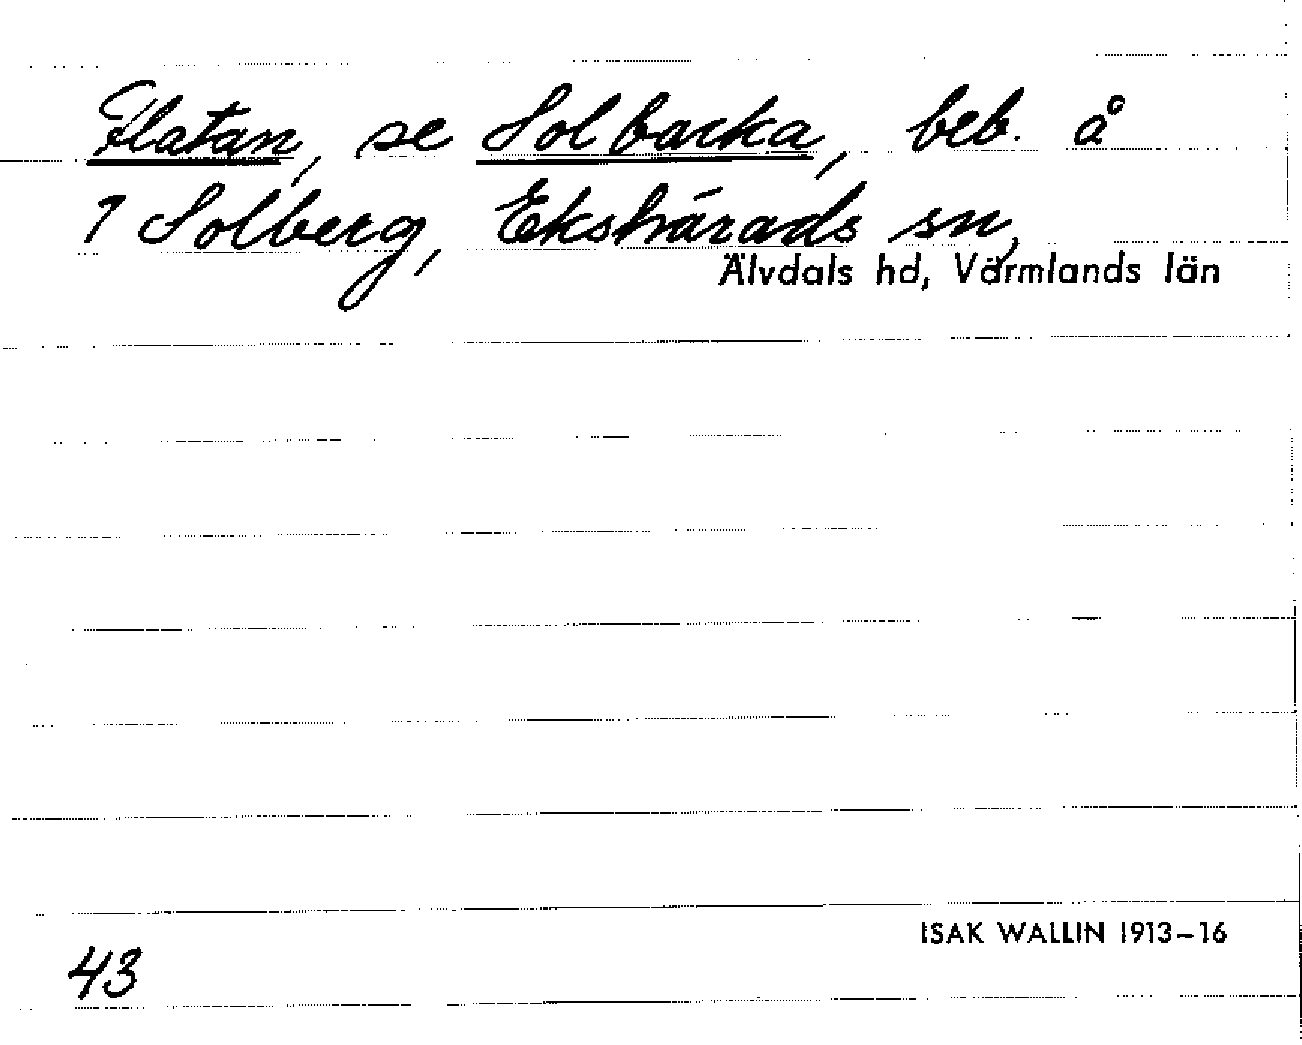 Flatan, se Solbacka, beb. å
1 Solberg, Ekshärads sn,
Älvdals hd, Värmlands län
ISAK WALLIN 1913-16
43